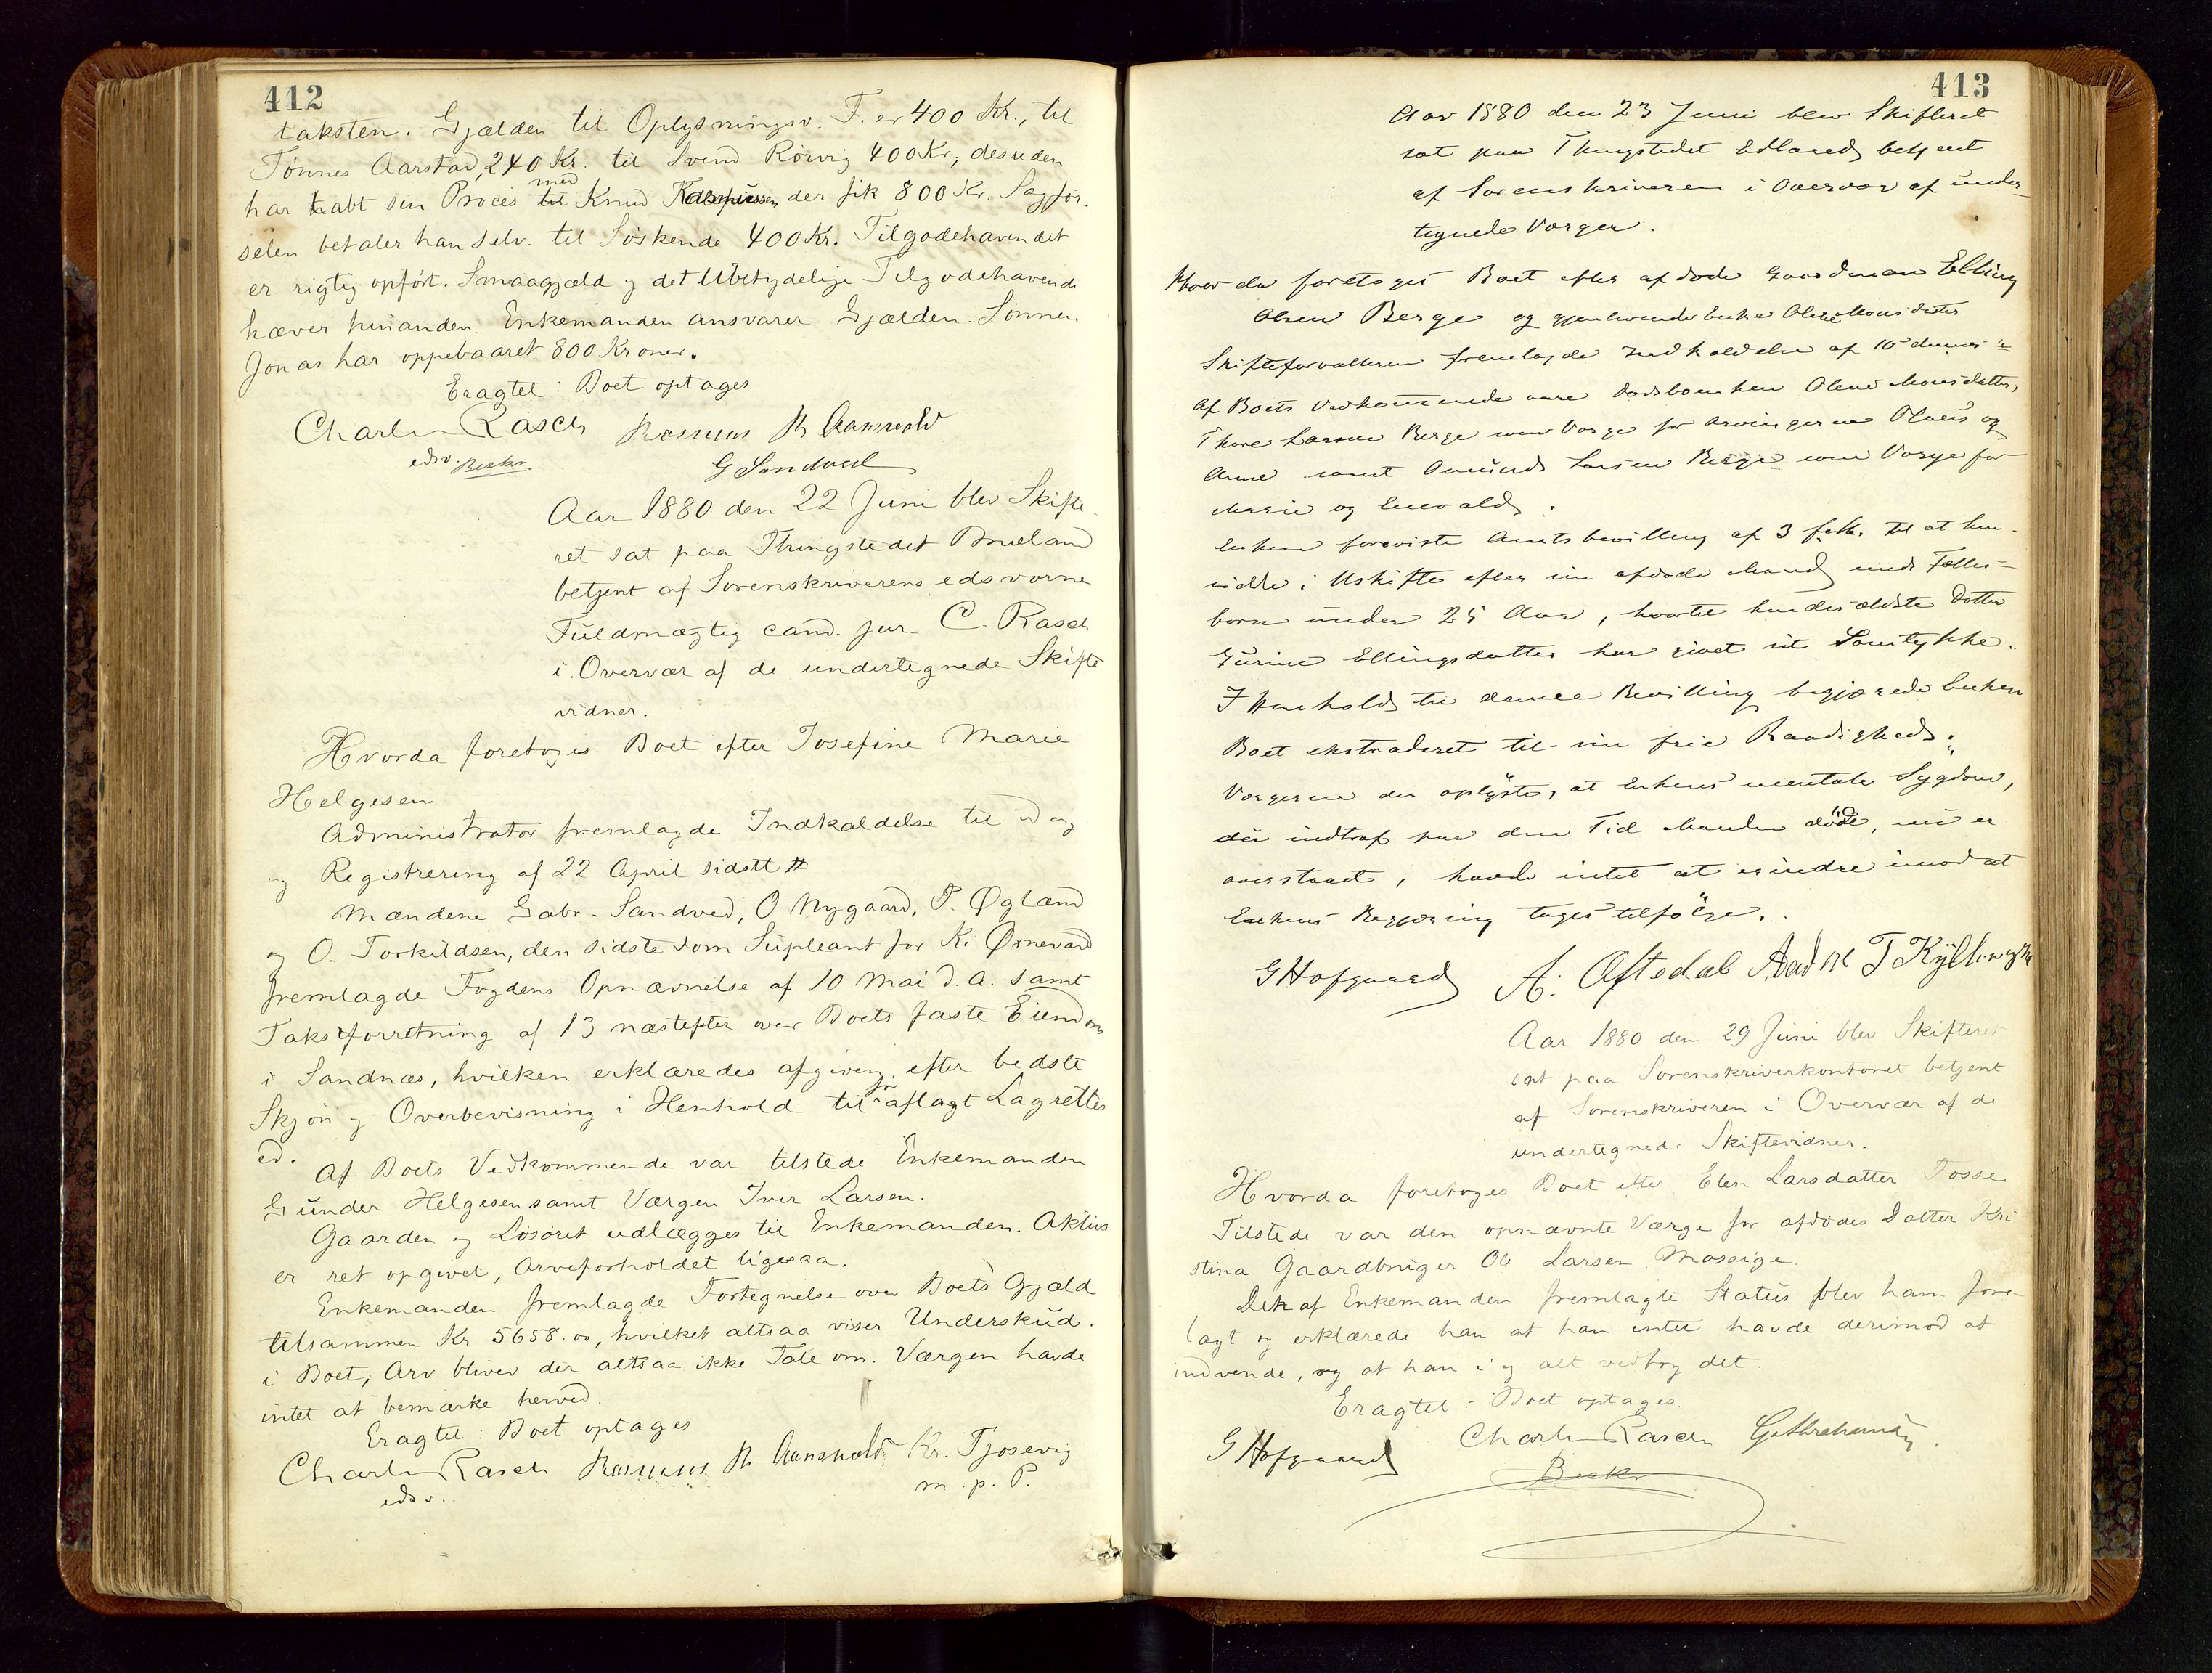 412
taksten. Gjælden til Oplysningsv. F. er 400 Kr., til
Tønnes Aarstad, 240 Kr. til Svend Rørvig 400 Kr, desuden
har tabt sin Proces med Knud Rasmussen, der fik 800 Kr. Sagfør-
selen betaler han selv. til Søskende 400 Kr. Tilgodehavendet
er rigtig opført. Smaagjæld og det Ubetydelige Tilgodehavende
hæver hinanden. Enkemanden ansvarer Gjælden. Sønnen
Jonas har oppebaaret 800 Kroner.
Eragtet: Boet optages
Charles Rasch Rasmus R
edsv. Beskr. G Sandved
Aar 1880 den 22 Juni blev Skifte-
ret sat paa Thingstedet Brueland
betjent af Sorenskriverens edsvorne
Fuldmægtig cand. jur. C. Rasch
i Overvær af de undertegnede Skifte
vidner.
Hvorda foretoges Boet efter Josefine Marie
Helgesen.
Administrator fremlagde Indkaldelse til idag
og Registrering af 22 April sidstl #
Mændene Gabr. Sandved, O Nygaard, T. Øgland
og O. Torkildsen, den sidste som Supleant for K. Ørnevard
fremlagde Fogdens Opnævnelse af 10 Mai d. A. samt
Takstforretning af 13 næstefter over Boets faste Eiendom
i Sandnæs, hvilken erklæredes afgiven efter bedste
Skjøn og Overbevisning i Henhold til før aflagt Lagrettes
ed.
Af Boets Vedkommende var tilstede Enkemanden
Gunder Helgesen samt Værgen Iver Larsen.
Gaarden og Løsøret udlægges til Enkemanden. Aktiva
er ret opgivet, Arveforholdet ligesaa.
Enkemanden fremlagde Fortegnelse over Boets Gjæld
tilsammen Kr 5658.00, hvilket altsaa viser Underskud.
i Boet, Arv bliver der altsaa ikke Tale om. Værgen havde
intet at bemærke herved.
Eragtet: Boet optages
Charles Rasch Rasmus R Kr. Tjosevig
edsv. m. p. P.
413
Aar 1880 den 23 Juni blev Skifteret
sat paa Thingstedet Edland, betjent
af Sorenskriveren i Overvær af under-
tegnede Værger.
Hvor da foretoges Boet efter afdøde Gaardmand Elling
Olsen Berge og gjenlevende Enke Olene Monsdatter
Skifteforvalteren fremlagde Indkaldelse af 10 dennes
Af Boets Vedkommende vare Enken Olene Monsdatter,
Thore Larsen Berge som Værge for Arvingerne Olaus og
Anne samt Omund Larsen Berge som Værge for
Marie og Enevald.
Enken foreviste Amtsbevilling af 3 Febr. til at hen-
sidde i Uskifte efter sin afdøde Mand med Fælles-
børn under 25 Aar, hvortil hendes ældste Datter
Gurine Ellingsdatter har givet sit Samtykke.
I Henhold til denne Bevilling begjærede Enken
Boet ekstraderet til sin frie Raadighed.
Værgerne der oplyste, at Enkens mentale Sygdom,
der indtraf paa den Tid Manden døde, nu er
overstaaet, havde intet at erindre imod at
Enkens Begjæring toges tilfølge.
G Hofgaard A: Oftedal
Aar 1880 den 29 Juni blev Skifteret
sat paa Sorenskriverkontoret betjent
af Sorenskriveren i Overvær af de
undertegnede Skiftevidner.
Hvorda foretoges Boet efter Elen Larsdatter Fosse
Tilstede var den opnævnte Værge for afdødes Datter Kri
stina Gaardbruger Ole Larsen Mossige
Den af Enkemanden fremlagte Status blev ham fore-
lagt og erklærede han at han intet havde derimod at
indvende, og at han i og alt vedtog det.
Eragtet: Boet optages.
G Hofgaard Charles Rasch G. Abrahamsen.
Beskr.